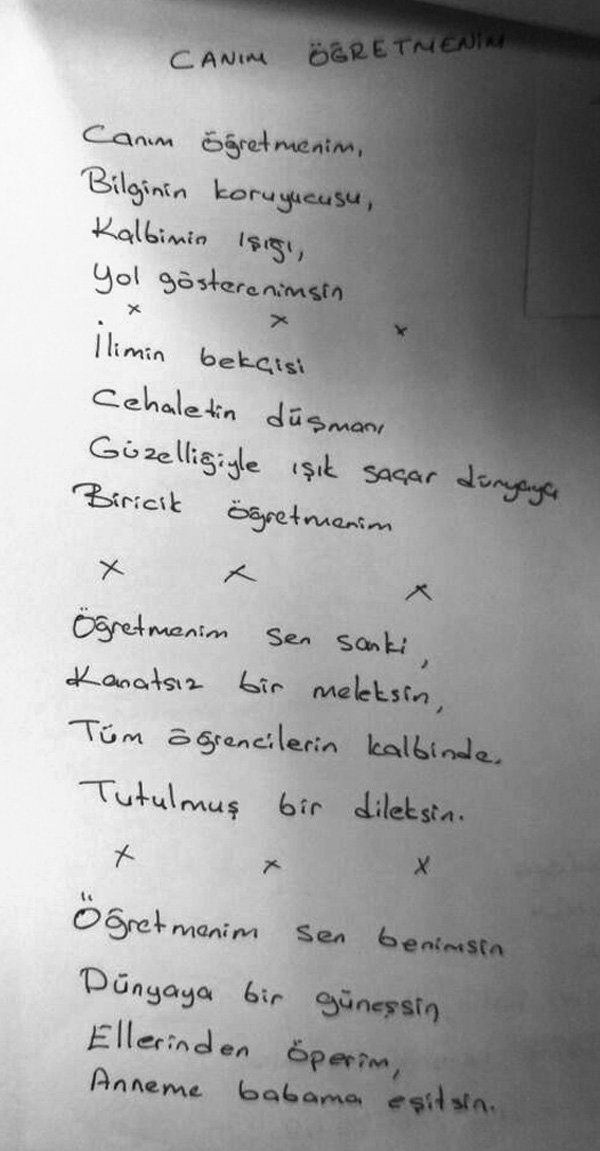 CANIM ÖĞRETMENİM
Canım öğretmenim,
Bilginin koruyucusu,
Kalbimin ışığı,
Yol gösterenimsin
x x x
İlimin bekçisi
Cehaletin düşmanı
Güzelliğiyle ışık saçar dünyaya
Biricik öğretmenim
x x x
Öğretmenim sen sanki,
Kanatsız bir meleksin,
Tüm öğrencilerin kalbinde.
Tutulmuş bir dileksin.
x x x
Öğretmenim sen benimsin
Dünyaya bir güneşsin
Ellerinden öperim,
Anneme babama eşitsin.